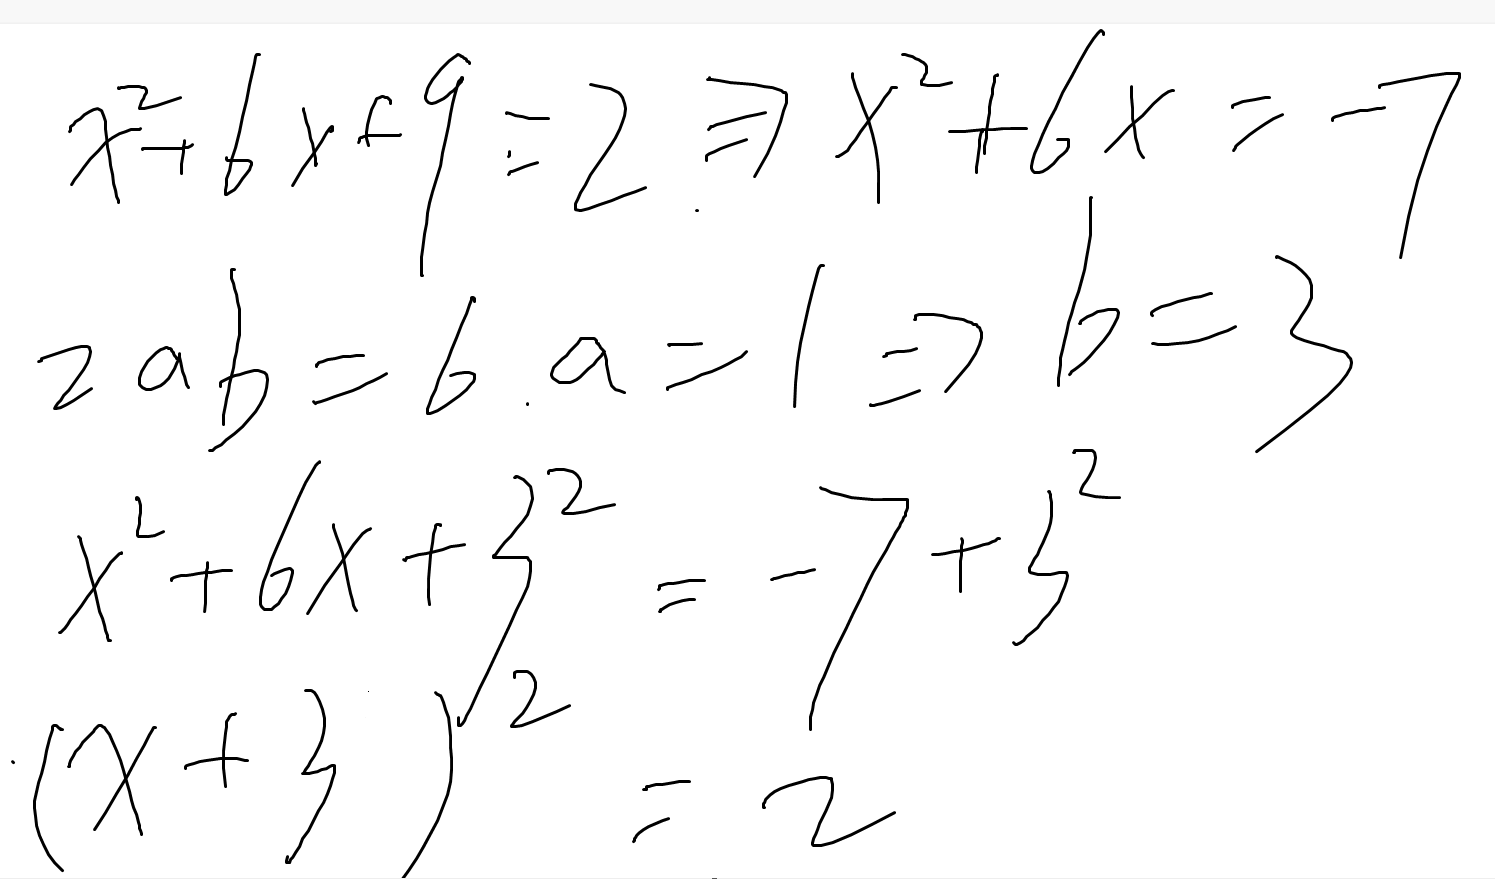 x²+6x+9=2 ⇒ x²+6x=-7
2ab=6. a=1 ⇒ b=3
x²+6x+3²=-7+3²
(x+3)²=2